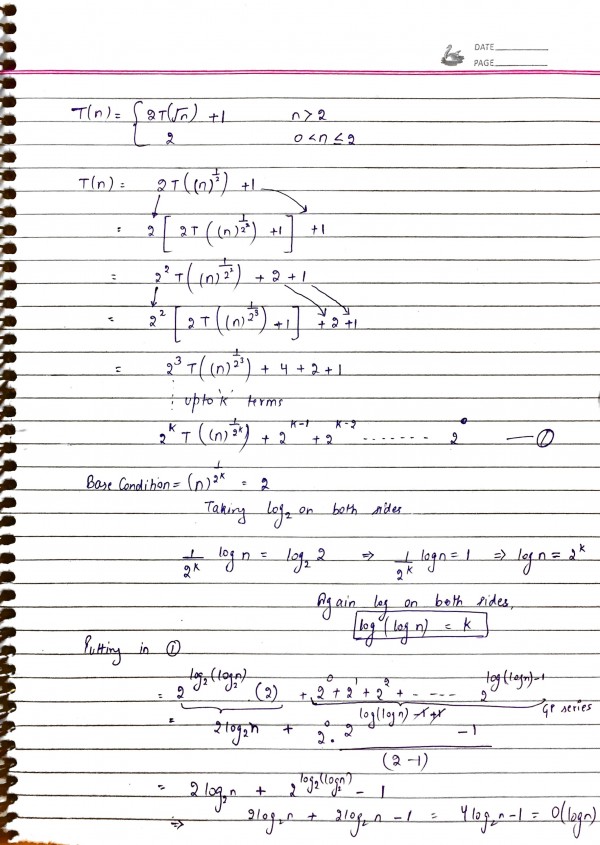 DATE
PAGE
T(n) = { 2T(√n) + 1    n > 2
2    0 < n ≤ 2
T(n) = 2T((n)^{1/2}) + 1
= 2 [ 2T((n)^{1/2^2}) + 1 ] + 1
= 2^2 T((n)^{1/2^2}) + 2 + 1
= 2^2 [ 2T((n)^{1/2^3}) + 1 ] + 2 + 1
= 2^3 T((n)^{1/2^3}) + 4 + 2 + 1
⋮ upto 'k' terms
2^k T((n)^{1/2^k}) + 2^{k-1} + 2^{k-2} ------- 2^0 — ①
Base Condition = (n)^{1/2^k} = 2
Taking log_2 on both sides
1/2^k log n = log_2 2 ⇒ 1/2^k log n = 1 ⇒ log n = 2^k
Again log on both sides,
log(log n) = k
Putting in ①
= 2^{log_2(log n)} . (2) + 2^0 + 2^1 + 2^2 + - ---- 2^{log(log n)-1}
GP series
= 2log_2 n + 2^0 . 2^{log(log n) -1 +1} - 1 / (2-1)
= 2log_2 n + 2^{log_2(log_2 n)} - 1
⇒ 2log_2 n + 2log_2 n - 1 = 4log_2 n - 1 = O(log n)